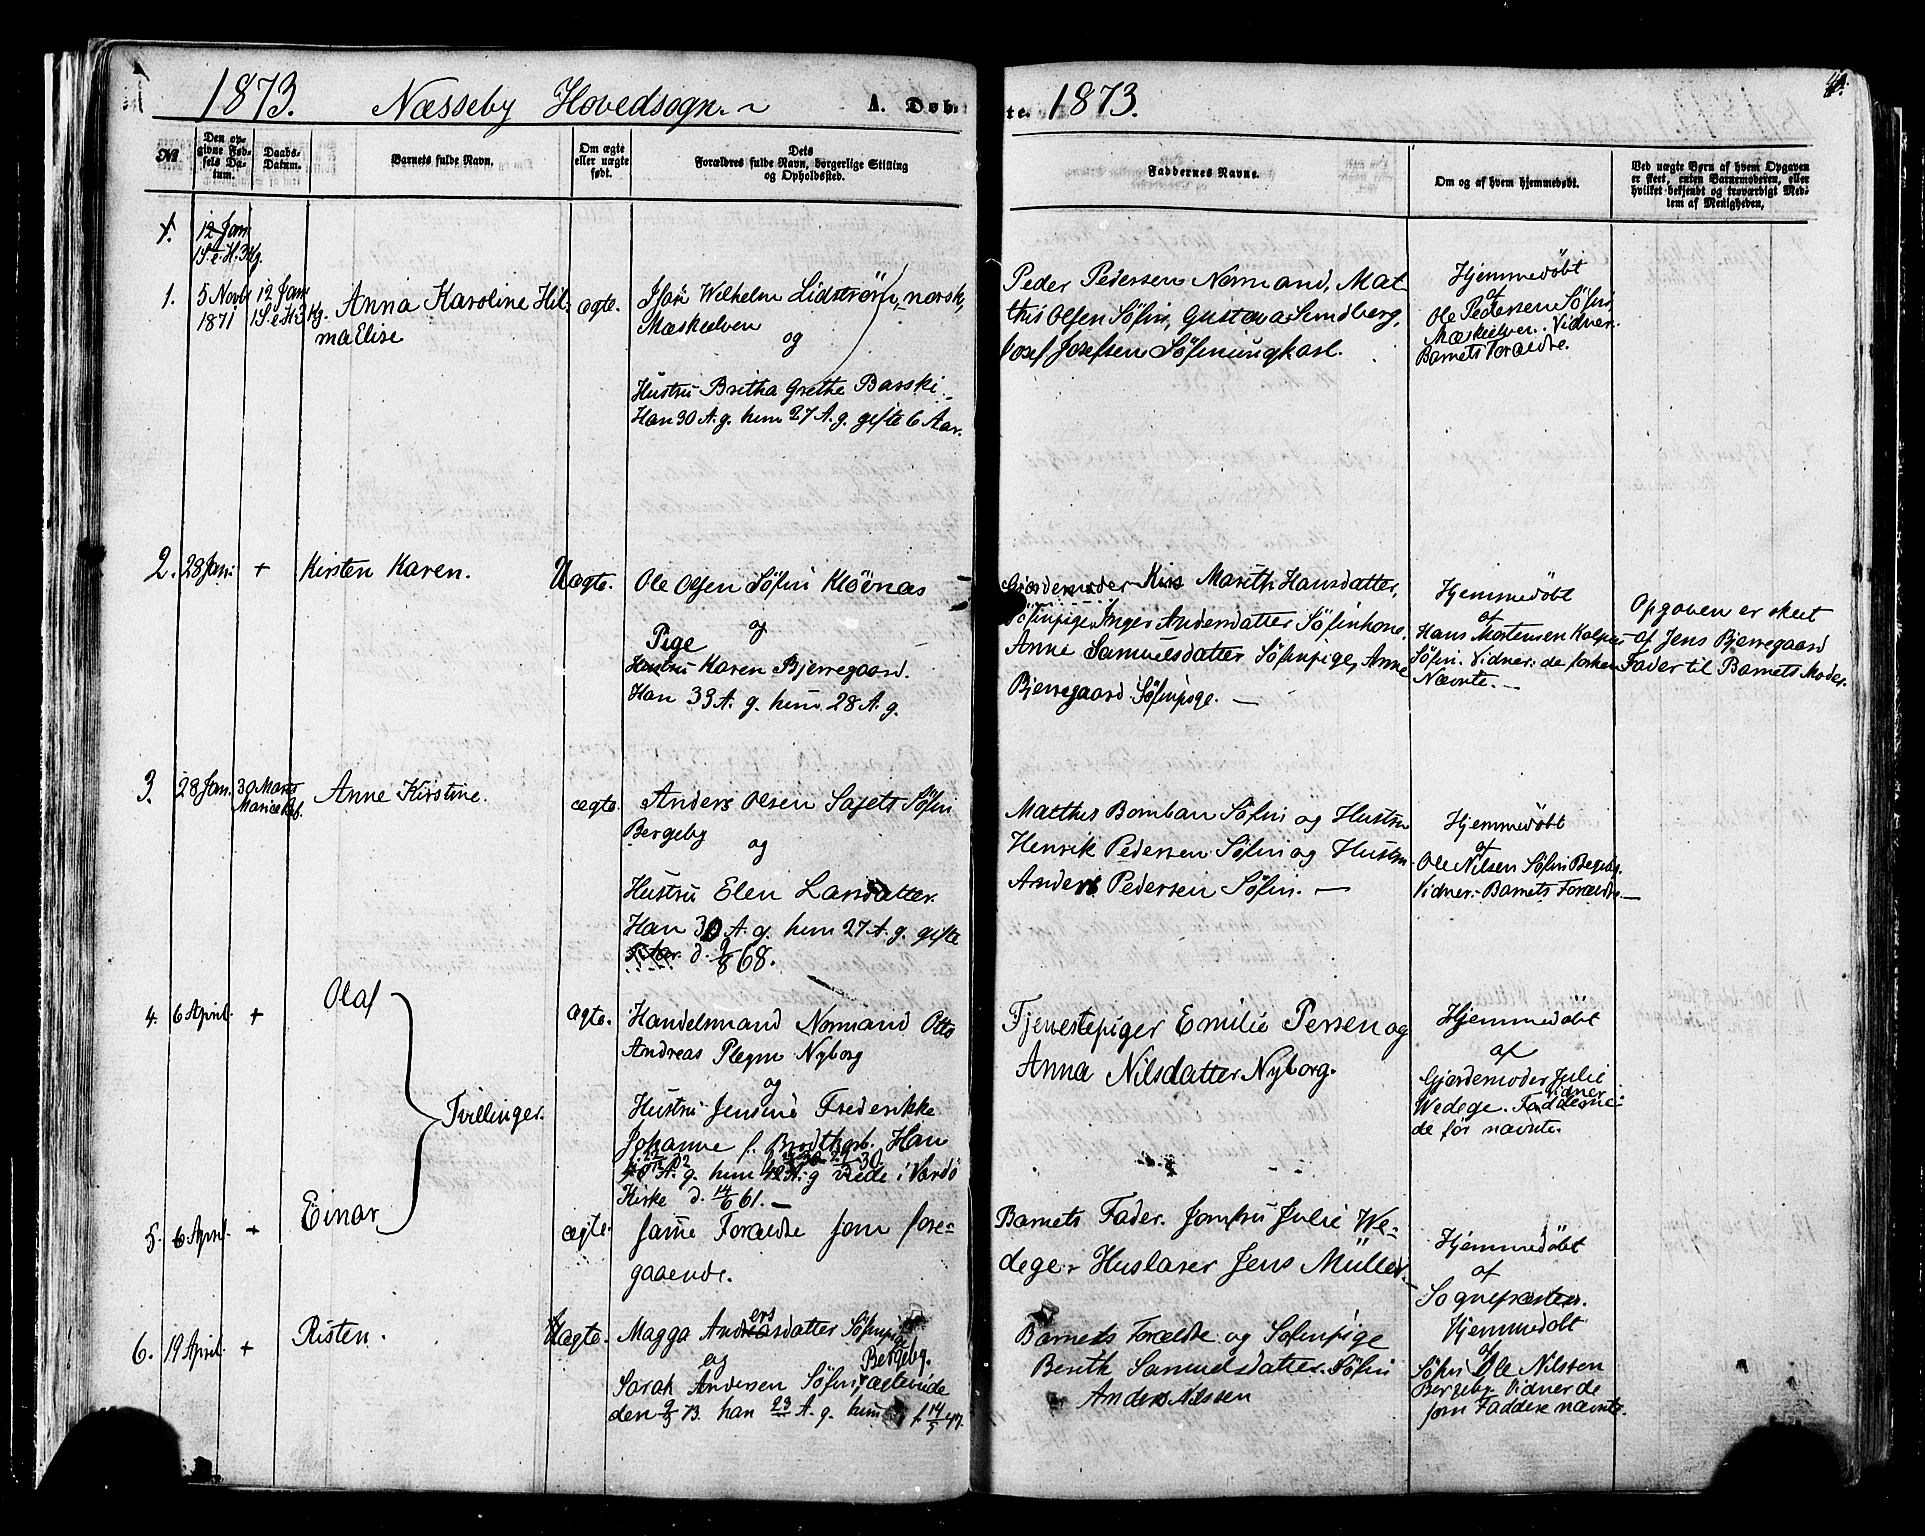 1873. Næsseby Hovedsogn. A. Døb-
te. 1873.
№
Den op-
givne Fød-
sels Da-
tum.
Daabs-
Datum.
Barnets fulde Navn.
Om ægte
eller uægte
født.
Dets
Forældres fulde Navn, borgerlige Stilling
og Opholdssted.
Faddernes Navne.
Om og af hvem hjemmedøbt.
Ved uægte Børn af hvem Opgaven
er skeet, enten Barnemoderen, eller
hvilket bekjendt og troværdigt Med-
lem af Menigheden.
1.
12 Jan
1 S. e. H. 3 Kg.
1.
5 Novbr
1871
12 Jan
1 S. e. H. 3 Kg.
Anna Karoline Hil-
ma Elise
ægte.
Isak Wilhelm Lidstrøm, norsk,
Mæskelven
og
Hustru Britha Grethe Barski
Han 30 A. g. hun 27 A. g. gifte 6 Aar.
Peder Pedersen Normand, Mat-
this Olsen Søfin, Gustava Sundberg,
Josef Josefsen Søfinungkarl.
Hjemmedøbt
af
Ole Pedersen Søfin
Mæskelven. Vidner:
Barnets Forældre.
2.
28 Jan:
+
Kirsten Karen.
Uægte.
Ole Olsen Søfin Kløvnæs
og
Pige
Hustru Karen Bjerregaard.
Han 33 A. g. hun 28 A. g.
Gjordemoder Kirs Marith Hansdatter,
Søfinpige, Inger Andersdatter Søfinkone,
Anne Samuelsdatter Søfinpige, Anne
Bjerregaard Søfinpige. —
Hjemmedøbt
af
Hans Mortensen Kalpus
Søfin. Vidner: de forhen
Nævnte. —
Opgaven er skeet
af Jens Bjerregaard
Fader til Barnets Moder.
3.
28 Jan.
30 Marts
Mariæ Beb.
Anne Kirstine.
ægte.
Anders Olsen Sajets Søfin
Bergeby
og
Hustru Elen Larsdatter.
Han 30 A. g. hun 27 A. g. gifte
d. 9/8 68.
Matthis Bomban Søfin og Hustru
Henrik Pedersen Søfin og Hustru
Anders Pedersen Søfin. —
Hjemmedøbt
af
Ole Nilsen Søfin Bergeby.
Vidner: Barnets Forældre. —
4.
6 April.
+
Olaf
Tvillinger.
ægte.
Handelsmand Normand Otto
Andreas Pleym Nyborg
og
Hustru Jensine Frederikke
Johanne f. Brodtkorb. Han
A. g. hun 42 A. g viede i Vardø
Kirke d. 14/6 61. —
Tjenestepiger Emilie Persen og
Anna Nilsdatter Nyborg.
Hjemmedøbt
af
Gjordemoder Julie
Wedege. Vidner Fadderne
de før nævnte.
5.
6 April.
+
Einar
ægte.
Samme Forældre som fore-
gaaende.
Barnets Fader. Jomfru Julie We-
dege. Huslærer Jens Müller. —
Hjemmedøbt
af
Sognepræsten.
6.
19 April.
+
Risten.
Uægte.
Magga Andersdatter Søfinpige
og Bergeby.
Sarah Andersen Søfin, ægteviede
den 9/3 73. han 23 A. g. hun f. 14/5 47.
Barnets Forældre og Søfinpige
Berith Samuelsdatter. Søfin
Anders Nilssen
Hjemmedøbt
af
Søfin Ole Nilssen
Bergeby Vidner de
som Faddere nævnte.